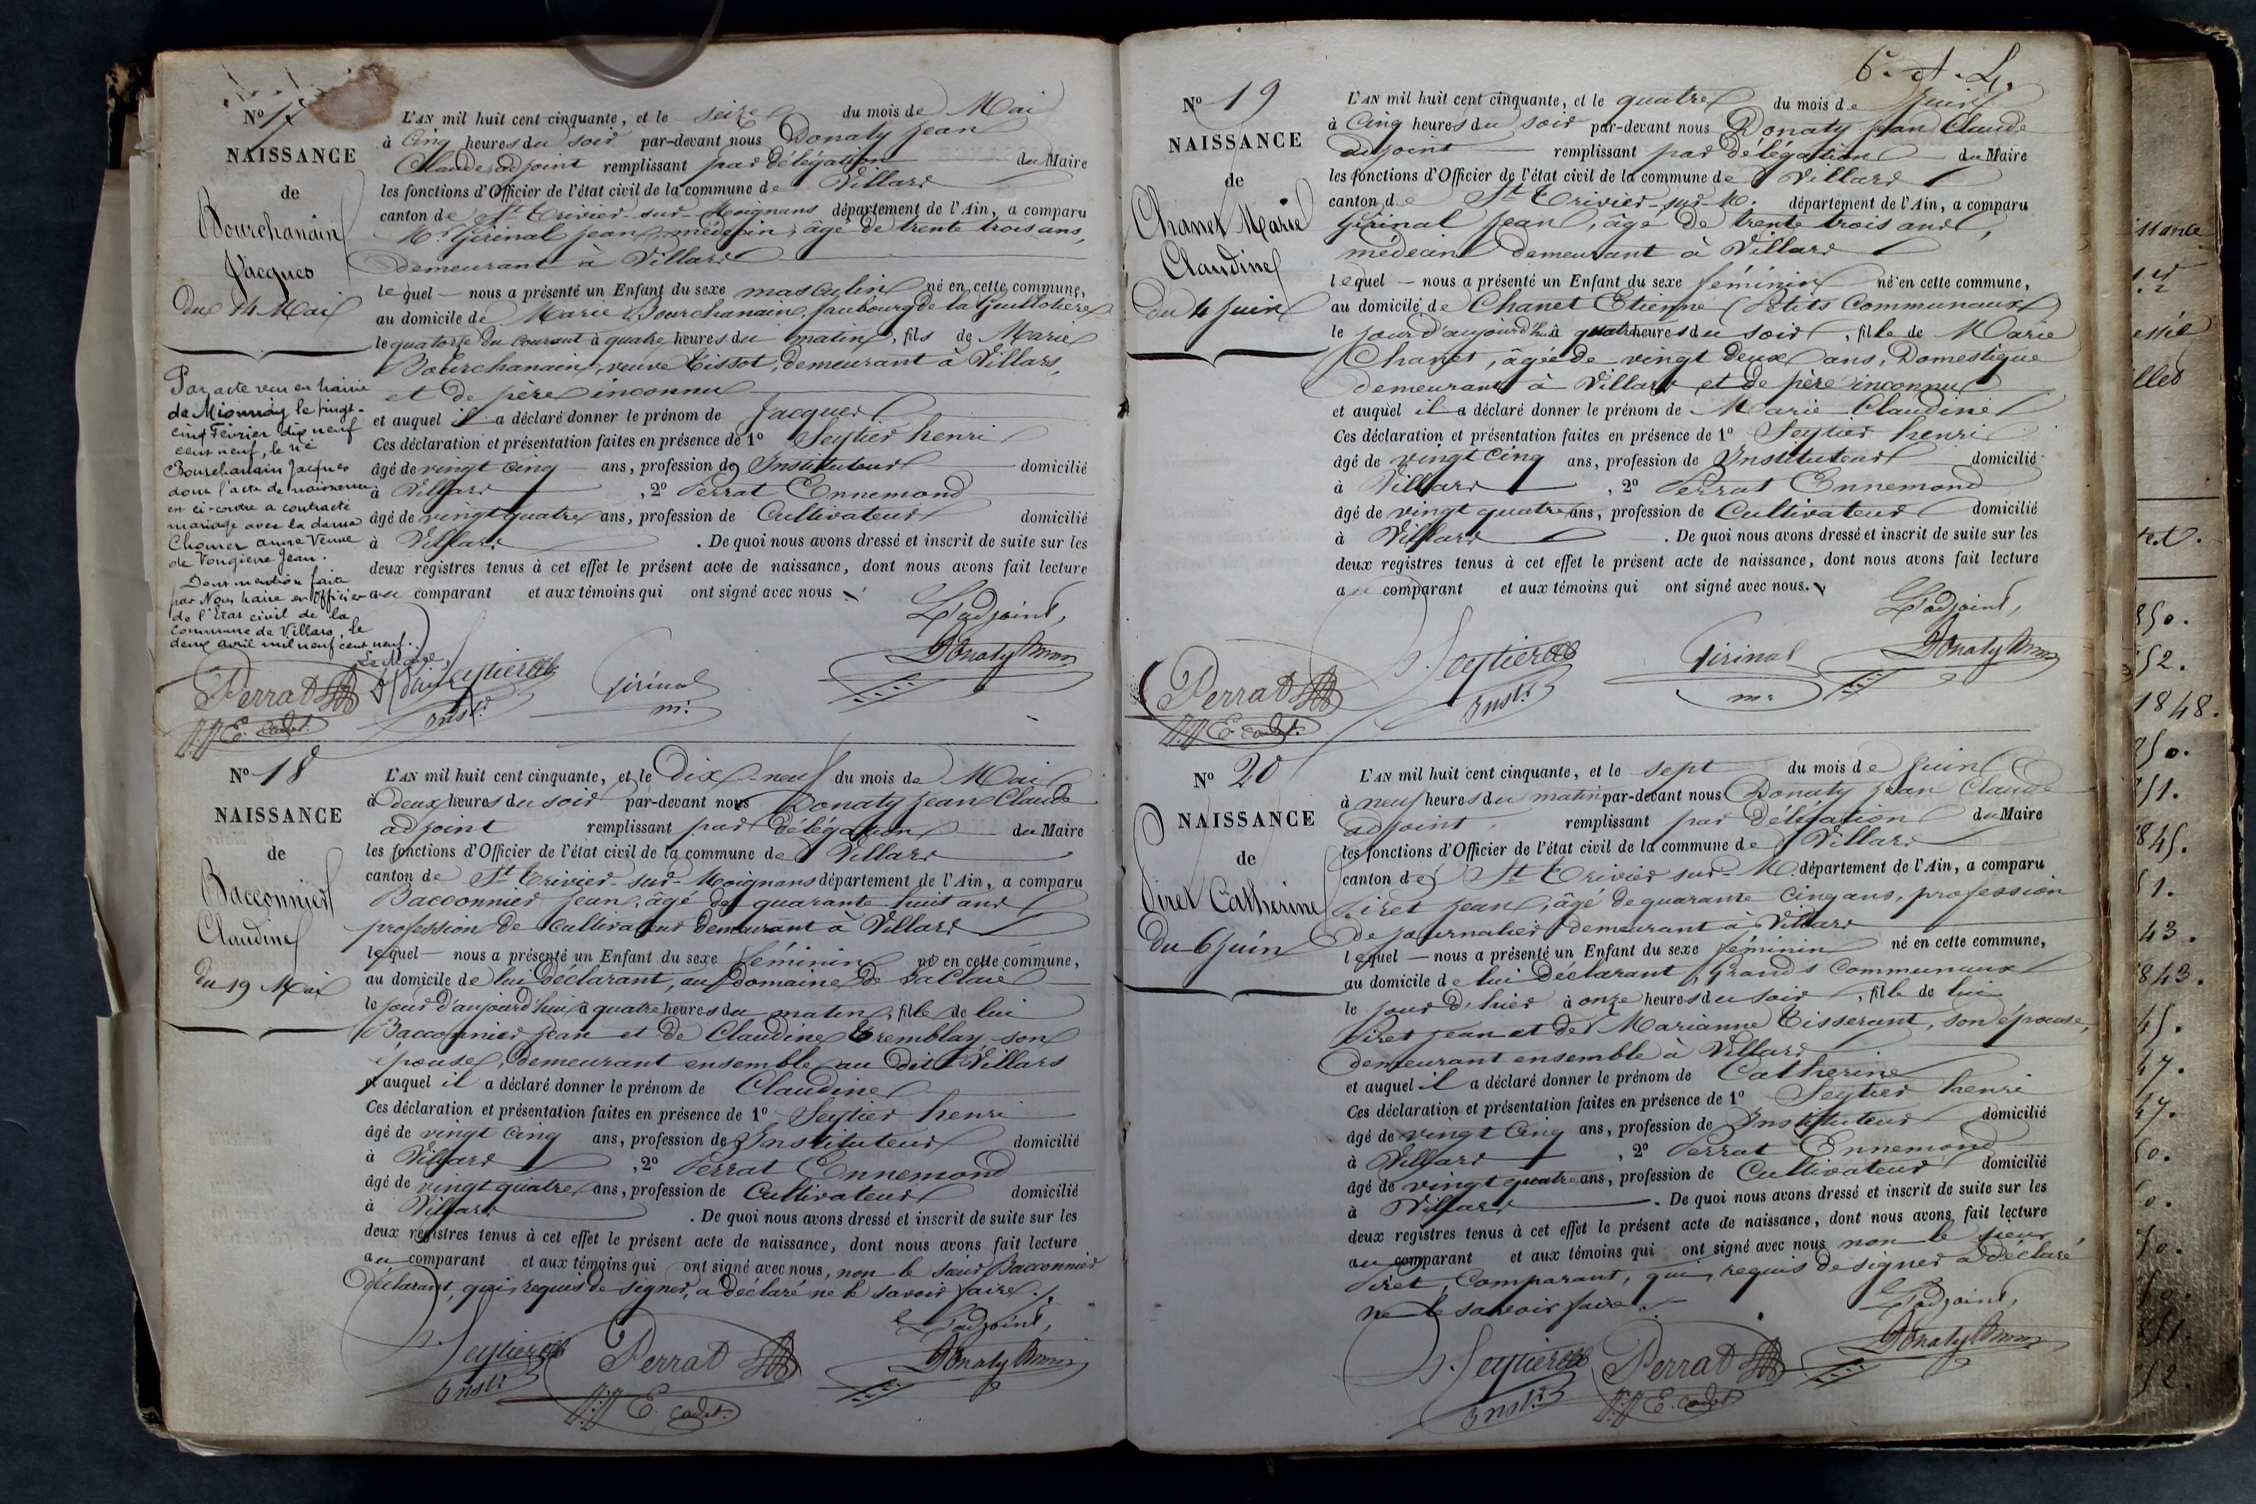 N° 17
NAISSANCE
de
Bourchanain
Jacques
du 14 Mai
Par acte reçu en mairie
de Mionnay le vingt-
cinq Février dix neuf
cent neuf, le né
Bourchanain Jacques
dont l'acte de naissance
est ci-contre a contracté
mariage avec la dame
Chomer anne Veuve
de Jean.
Dont mention faite
par Nous Maire en officier
de l'Etat civil de la
commune de Villars, le
deux avril mil neuf cent neuf.
Le Maire,
L'AN mil huit cent cinquante, et le seize du mois de Mai
à Cinq heures du soir par-devant nous Donaty Jean
Claude adjoint remplissant par délégation du Maire
les fonctions d'Officier de l'état civil de la commune de Villars
canton de St Trivier-sur-Moignans département de l'Ain, a comparu
Mr Girinal Jean, médecin, âgé de trente trois ans,
demeurant à Villars
lequel — nous a présenté un Enfant du sexe masculin né en cette commune,
au domicile de Marie Bourchanain, faubourg de la Guillotière
le quatorze du courant à quatre heures du matin, fils de Marie
Bourchanain, veuve Tissot, demeurant à Villars,
et de père inconnu
et auquel il a déclaré donner le prénom de Jacques
Ces déclaration et présentation faites en présence de 1° Seytier henri
âgé de vingt cinq ans, profession de Instituteur domicilié
à Villars , 2° Perrat Ennemond
âgé de vingt quatre ans, profession de Cultivateur domicilié
à Villars . De quoi nous avons dressé et inscrit de suite sur les
deux registres tenus à cet effet le présent acte de naissance, dont nous avons fait lecture
au comparant et aux témoins qui ont signé avec nous
L'adjoint,
Perrat Seytier Girinal Donaty
P.P E. cadet. Instr m:
N° 18
NAISSANCE
de
Bacconnier
Claudine
du 19 Mai
L'AN mil huit cent cinquante, et le Dix-neuf du mois de Mai
à deux heures du soir par-devant nous Donaty Jean Claude
adjoint remplissant par délégation du Maire
les fonctions d'Officier de l'état civil de la commune de Villars
canton de St Trivier-sur-Moignans département de l'Ain, a comparu
Bacconnier Jean, âgé de quarante huit ans
profession de Cultivateur demeurant à Villars
lequel — nous a présenté un Enfant du sexe féminin né en cette commune,
au domicile de lui déclarant, au Domaine de
le jour d'aujourd'hui à quatre heures du matin, fille de lui
Bacconnier Jean et de Claudine Tremblay son
épouse, demeurant ensemble au dit Villars
et auquel il a déclaré donner le prénom de Claudine
Ces déclaration et présentation faites en présence de 1° Seytier henri
âgé de vingt cinq ans, profession de Instituteur domicilié
à Villars , 2° Perrat Ennemond
âgé de vingt quatre ans, profession de Cultivateur domicilié
à Villars . De quoi nous avons dressé et inscrit de suite sur les
deux registres tenus à cet effet le présent acte de naissance, dont nous avons fait lecture
au comparant et aux témoins qui ont signé avec nous, non le sieur Bacconnier
déclarant, qui, requis de signer, a déclaré ne le savoir faire ./.
L'adjoint,
Seytier Perrat Donaty
Instr P.P E. cadet.
N° 19
NAISSANCE
de
Chanet Marie
Claudine
du 4 Juin
L'AN mil huit cent cinquante, et le quatre du mois de Juin
à Cinq heures du soir par-devant nous Donaty Jean Claude
adjoint remplissant par délégation du Maire
les fonctions d'Officier de l'état civil de la commune de Villars
canton de St Trivier-sur-M. département de l'Ain, a comparu
Girinal Jean, âgé de trente trois ans,
médecin demeurant à Villars
lequel — nous a présenté un Enfant du sexe féminin né en cette commune,
au domicile de Chanet Etienne (Petits Communaux)
le jour d'aujourd'hui à quatre heures du soir, fille de Marie
Chanet, âgée de vingt deux ans, Domestique
demeurant à Villars et de père inconnu
et auquel il a déclaré donner le prénom de Marie Claudine
Ces déclaration et présentation faites en présence de 1° Seytier henri
âgé de vingt cinq ans, profession de Instituteur domicilié
à Villars , 2° Perrat Ennemond
âgé de vingt quatre ans, profession de Cultivateur domicilié
à Villars . De quoi nous avons dressé et inscrit de suite sur les
deux registres tenus à cet effet le présent acte de naissance, dont nous avons fait lecture
au comparant et aux témoins qui ont signé avec nous.
L'adjoint,
Perrat Seytier Girinal Donaty
P.P E cadet. Instr m:
N° 20
NAISSANCE
de
Piret Catherine
du 6 Juin
L'AN mil huit cent cinquante, et le sept du mois de Juin
à neuf heures du matin par-devant nous Donaty Jean Claude
adjoint remplissant par Délégation du Maire
les fonctions d'Officier de l'état civil de la commune de Villars
canton de St Trivier sur M. département de l'Ain, a comparu
Piret Jean, âgé de quarante Cinq ans, profession
de journalier demeurant à Villars
lequel — nous a présenté un Enfant du sexe féminin né en cette commune,
au domicile de lui déclarant, Grands Communaux
le jour d'hier à onze heures du soir, fille de lui
Piret Jean et de Marianne Tisserant, son épouse,
demeurant ensemble à Villars
et auquel il a déclaré donner le prénom de Catherine
Ces déclaration et présentation faites en présence de 1° Seytier henri
âgé de vingt Cinq ans, profession de Instituteur domicilié
à Villars , 2° Perrat Ennemond
âgé de vingt quatre ans, profession de Cultivateur domicilié
à Villars . De quoi nous avons dressé et inscrit de suite sur les
deux registres tenus à cet effet le présent acte de naissance, dont nous avons fait lecture
au comparant et aux témoins qui ont signé avec nous non le sieur
Piret, Comparant, qui, requis de signer a déclaré
ne le savoir faire ./.
L'adjoint,
Seytier Perrat Donaty
Instr P.P E. cadet
1848.